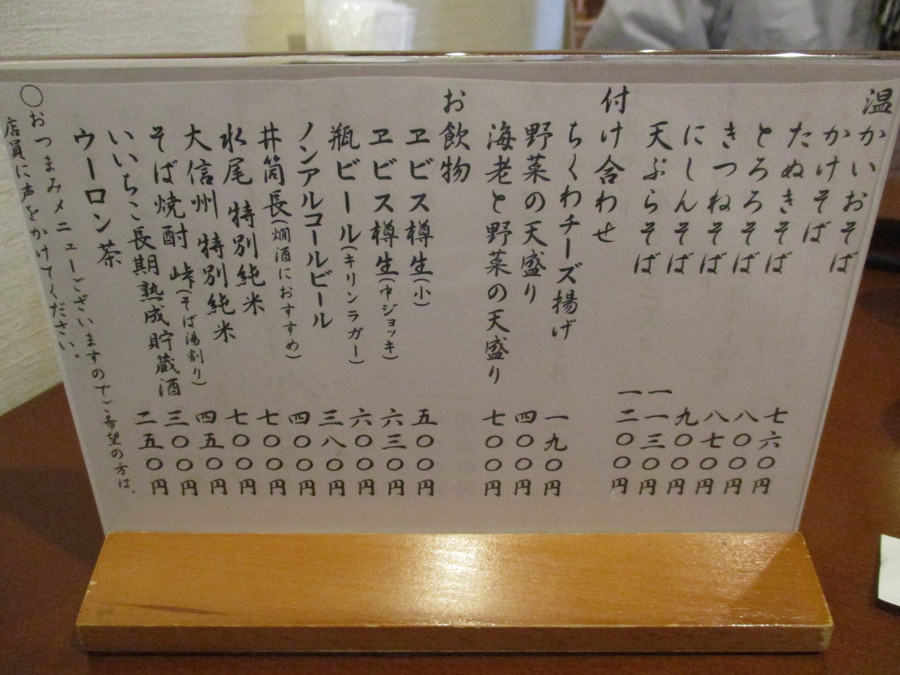 温かいおそば
かけそば 七六〇円
たぬきそば 八〇〇円
とろろそば 八七〇円
きつねそば 九〇〇円
にしんそば 一一三〇円
天ぷらそば 一二〇〇円
付け合わせ
ちくわチーズ揚げ 一九〇円
野菜の天盛り 四〇〇円
海老と野菜の天盛り 七〇〇円
お飲物
ヱビス樽生(小) 五〇〇円
ヱビス樽生(中ジョッキ) 六三〇円
瓶ビール(キリンラガー) 六〇〇円
ノンアルコールビール 三八〇円
井筒長(燗酒におすすめ) 四〇〇円
水尾 特別純米 七〇〇円
大信州 特別純米 七〇〇円
そば焼酎 峠(そば湯割り) 四五〇円
いいちこ長期熟成貯蔵酒 三〇〇円
ウーロン茶 二五〇円
〇おつまみメニューございますのでご希望の方は、
店員に声をかけてください。